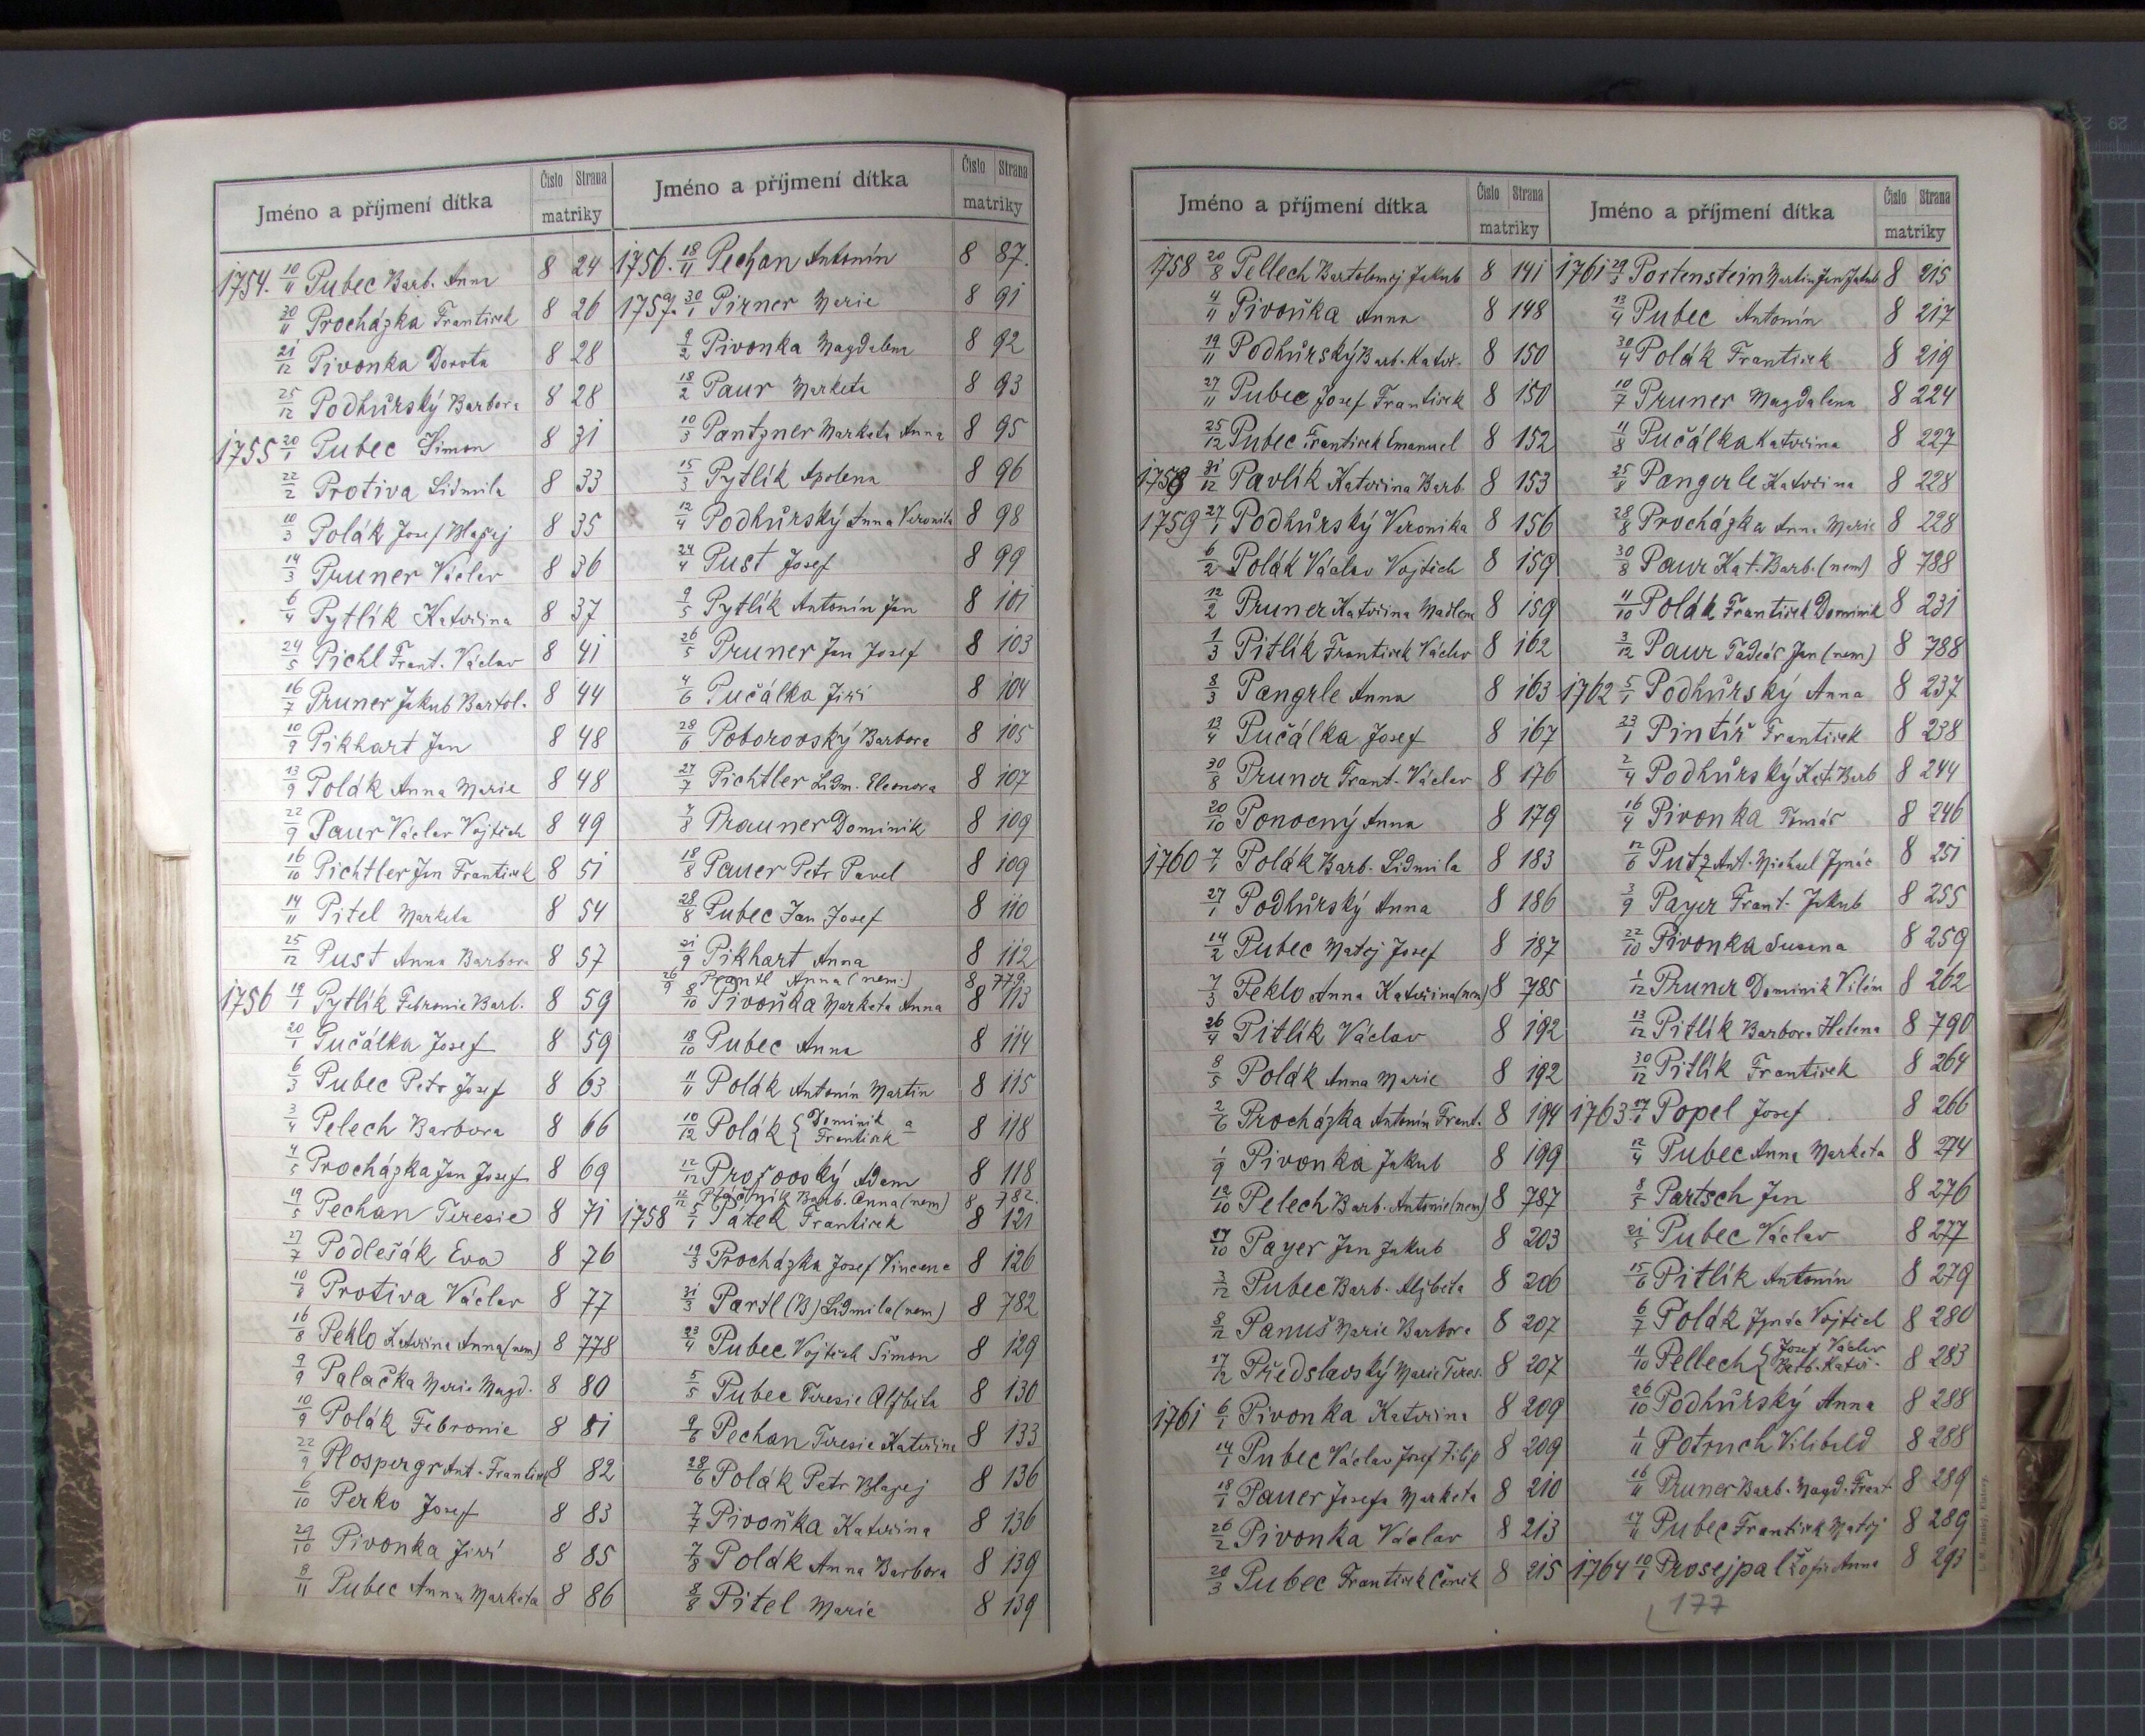 Jméno a příjmení dítka Číslo Strana matriky
1754. 10/11 Pubec Barb. Anna 8 24
30/11 Procházka Frantisek 8 26
21/12 Pivonka Dorota 8 28
25/12 Podhůrský Barbora 8 28
1755 20/1 Pubec Šimon 8 31
22/2 Protiva Lidmila 8 33
10/3 Polák Josef Blažej 8 35
14/3 Pruner Václav 8 36
6/4 Pytlík Kateřina 8 37
24/5 Pichl Frant. Václav 8 41
16/7 Pruner Jakub Bartol. 8 44
10/9 Pikhart Jan 8 48
13/9 Polák Anna Marie 8 48
22/9 Paur Václav Vojtěch 8 49
16/10 Pichtler Jan Frantisek 8 51
14/11 Pitel Marketa 8 54
25/12 Pust Anna Barbora 8 57
1756 19/1 Pytlík Febronie Barb. 8 59
20/1 Pučálka Josef 8 59
6/3 Pubec Petr Josef 8 63
3/4 Pelech Barbora 8 66
4/5 Procházka Jan Josef 8 69
19/5 Pechan Teresie 8 71
27/7 Podlešák Eva 8 76
10/8 Protiva Václav 8 77
16/8 Peklo Kateřina Anna (nem) 8 778
9/9 Palačka Marie Magd. 8 80
10/9 Polák Febronie 8 81
22/9 Plospergr Ant. Frantisek 8 82
6/10 Perko Josef 8 83
29/10 Pivonka Jiří 8 85
8/11 Pubec Anna Marketa 8 86
Jméno a příjmení dítka Číslo Strana matriky
1756. 18/11 Pechan Antonín 8 87.
1757. 30/1 Pirner Marie 8 91
9/2 Pivonka Magdalena 8 92
18/2 Paur Marketa 8 93
10/3 Pantzner Marketa Anna 8 95
15/3 Pytlík Apolena 8 96
12/4 Podhůrský Anna Veronika 8 98
24/4 Pust Josef 8 99
9/5 Pytlík Antonín Jan 8 101
26/5 Pruner Jan Josef 8 103
4/6 Pučálka Jiří 8 104
28/6 Poborovský Barbora 8 105
27/7 Pichtler Lidm. Eleonora 8 107
7/8 Prauner Dominik 8 109
18/8 Pauer Petr Pavel 8 109
28/8 Pubec Jan Josef 8 110
21/9 Pikhart Anna 8 112
26/9 Anna (nem.) 8 779
8/10 Pivoňka Marketa Anna 8 113
18/10 Pubec Anna 8 114
11/11 Polák Antonín Martin 8 115
10/12 Polák { Dominik a Frantisek 8 118
12/12 Prosovský Adam 8 118
12/12 Plačnik Barb. Anna (nem) 8 782.
1758 5/1 Pátek Frantisek 8 121
19/3 Procházka Josef Vincenc 8 126
31/3 Partl (B) Lidmila (nem) 8 782
23/4 Pubec Vojtěch Šimon 8 129
5/5 Pubec Teresie Alžběta 8 130
9/6 Pechan Teresie Kateřina 8 133
28/6 Polák Petr Blažej 8 136
7/7 Pivoňka Kateřina 8 136
7/8 Polák Anna Barbora 8 139
8/8 Pitel Marie 8 139
Jméno a příjmení dítka Číslo Strana matriky
1758 20/8 Pellech Bartoloměj Jakub 8 141
4/11 Pivoňka Anna 8 148
19/11 Podhůrský Barb. Kateř. 8 150
27/11 Pubec Josef Frantisek 8 150
25/12 Pubec Frantisek Emanuel 8 152
1758 31/12 Pavlík Kateřina Barb 8 153
1759 27/1 Podhůrský Veronika 8 156
6/2 Polák Václav Vojtěch 8 159
12/2 Pruner Kateřina Madlena 8 159
1/3 Pitlík Frantisek Václav 8 162
8/3 Pangrle Anna 8 163
13/4 Pučálka Josef 8 167
30/8 Pruner Frant. Václav 8 176
20/10 Ponocný Anna 8 179
1760 7/1 Polák Barb. Lidmila 8 183
27/1 Podhůrský Anna 8 186
14/2 Pubec Matěj Josef 8 187
7/3 Peklo Anna Kateřina (nem) 8 785
26/4 Pitlík Václav 8 192
8/5 Polák Anna Marie 8 192
2/6 Procházka Antonín Frant. 8 194
1/9 Pivonka Jakub 8 199
12/10 Pelech Barb. Antonie (nem) 8 787
17/10 Payer Jan Jakub 8 203
3/12 Pubec Barb. Alžběta 8 206
8/12 Panuš Marie Barbora 8 207
17/12 Předslavský Marie Teres. 8 207
1761 6/1 Pivonka Kateřina 8 209
14/1 Pubec Václav Josef Filip 8 209
18/1 Pauer Josefa Marketa 8 210
26/2 Pivonka Václav 8 213
20/3 Pubec Frantisek Čeněk 8 215
Jméno a příjmení dítka Číslo Strana matriky
1761 29/3 Portenstein Martin Jan Jakub 8 215
13/4 Pubec Antonín 8 217
30/4 Polák Frantisek 8 219
10/7 Pruner Magdalena 8 224
11/8 Pučálka Kateřina 8 227
25/8 Pangerle Kateřina 8 228
28/8 Procházka Anna Marie 8 228
30/8 Paur Kat. Barb. (nem) 8 788
11/10 Polák Frantisek Dominik 8 231
3/12 Paur Tadeáš Jan (nem) 8 788
1762 5/1 Podhůrský Anna 8 237
23/1 Pintíř Frantisek 8 238
2/4 Podhůrský Kat. Barb 8 244
16/4 Pivonka Tomáš 8 246
12/6 Putz Ant. Michael Ignác 8 251
3/9 Payer Frant. Jakub 8 255
22/10 Pivonka Susana 8 259
1/12 Pruner Dominik Vilém 8 262
13/12 Pitlík Barbora Helena 8 790
30/12 Pitlík Frantisek 8 264
1763 17/1 Popel Josef 8 266
12/4 Pubec Anna Marketa 8 274
8/5 Partsch Jan 8 276
21/5 Pubec Václav 8 277
15/6 Pitlík Antonín 8 279
6/7 Polák Ignác Vojtěch 8 280
11/10 Pellech { Josef Václav Barb. Kateř. 8 283
26/10 Podhůrský Anna 8 288
1/11 Potruch Vilibald 8 288
16/11 Pruner Barb. Magd. Frant 8 289
17/11 Pubec Frantisek Matěj 8 289
1764 10/1 Prosejpal Žofie Anna 8 293
177